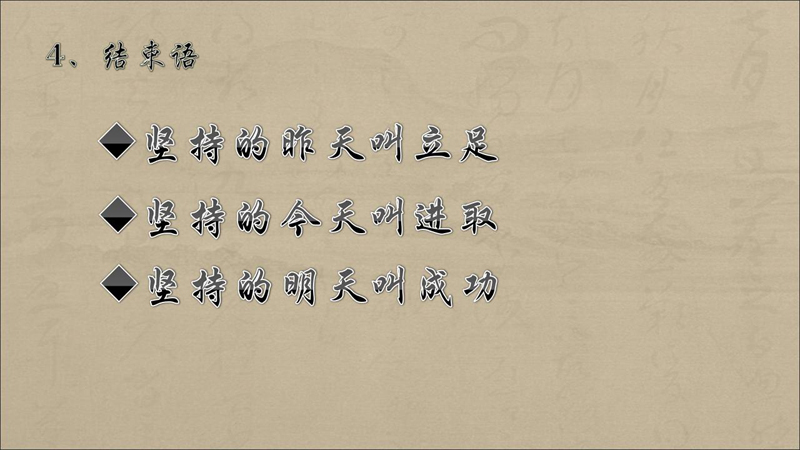 4、结束语
坚持的昨天叫立足
坚持的今天叫进取
坚持的明天叫成功